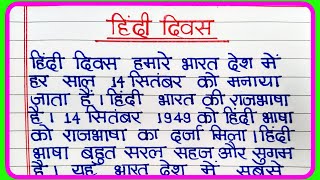 हिंदी दिवस
हिंदी दिवस हमारे भारत देश में
हर साल 14 सितंबर को मनाया
जाता हैं । हिंदी भारत की राजभाषा
है । 14 सितंबर 1949 को हिंदी भाषा
को राजभाषा का दर्जा मिला । हिंदी
भाषा बहुत सरल, सहज और सुगम
है । यह भारत देश में सबसे